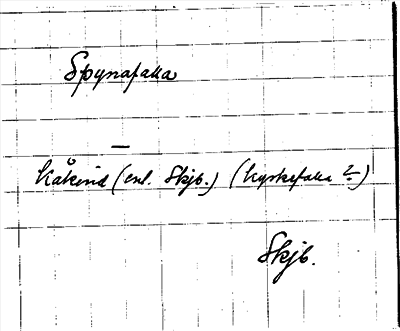 Spynafalla
—
Kåkind (enl. Skjb.) (Kyrkefalla?)
Skjb.